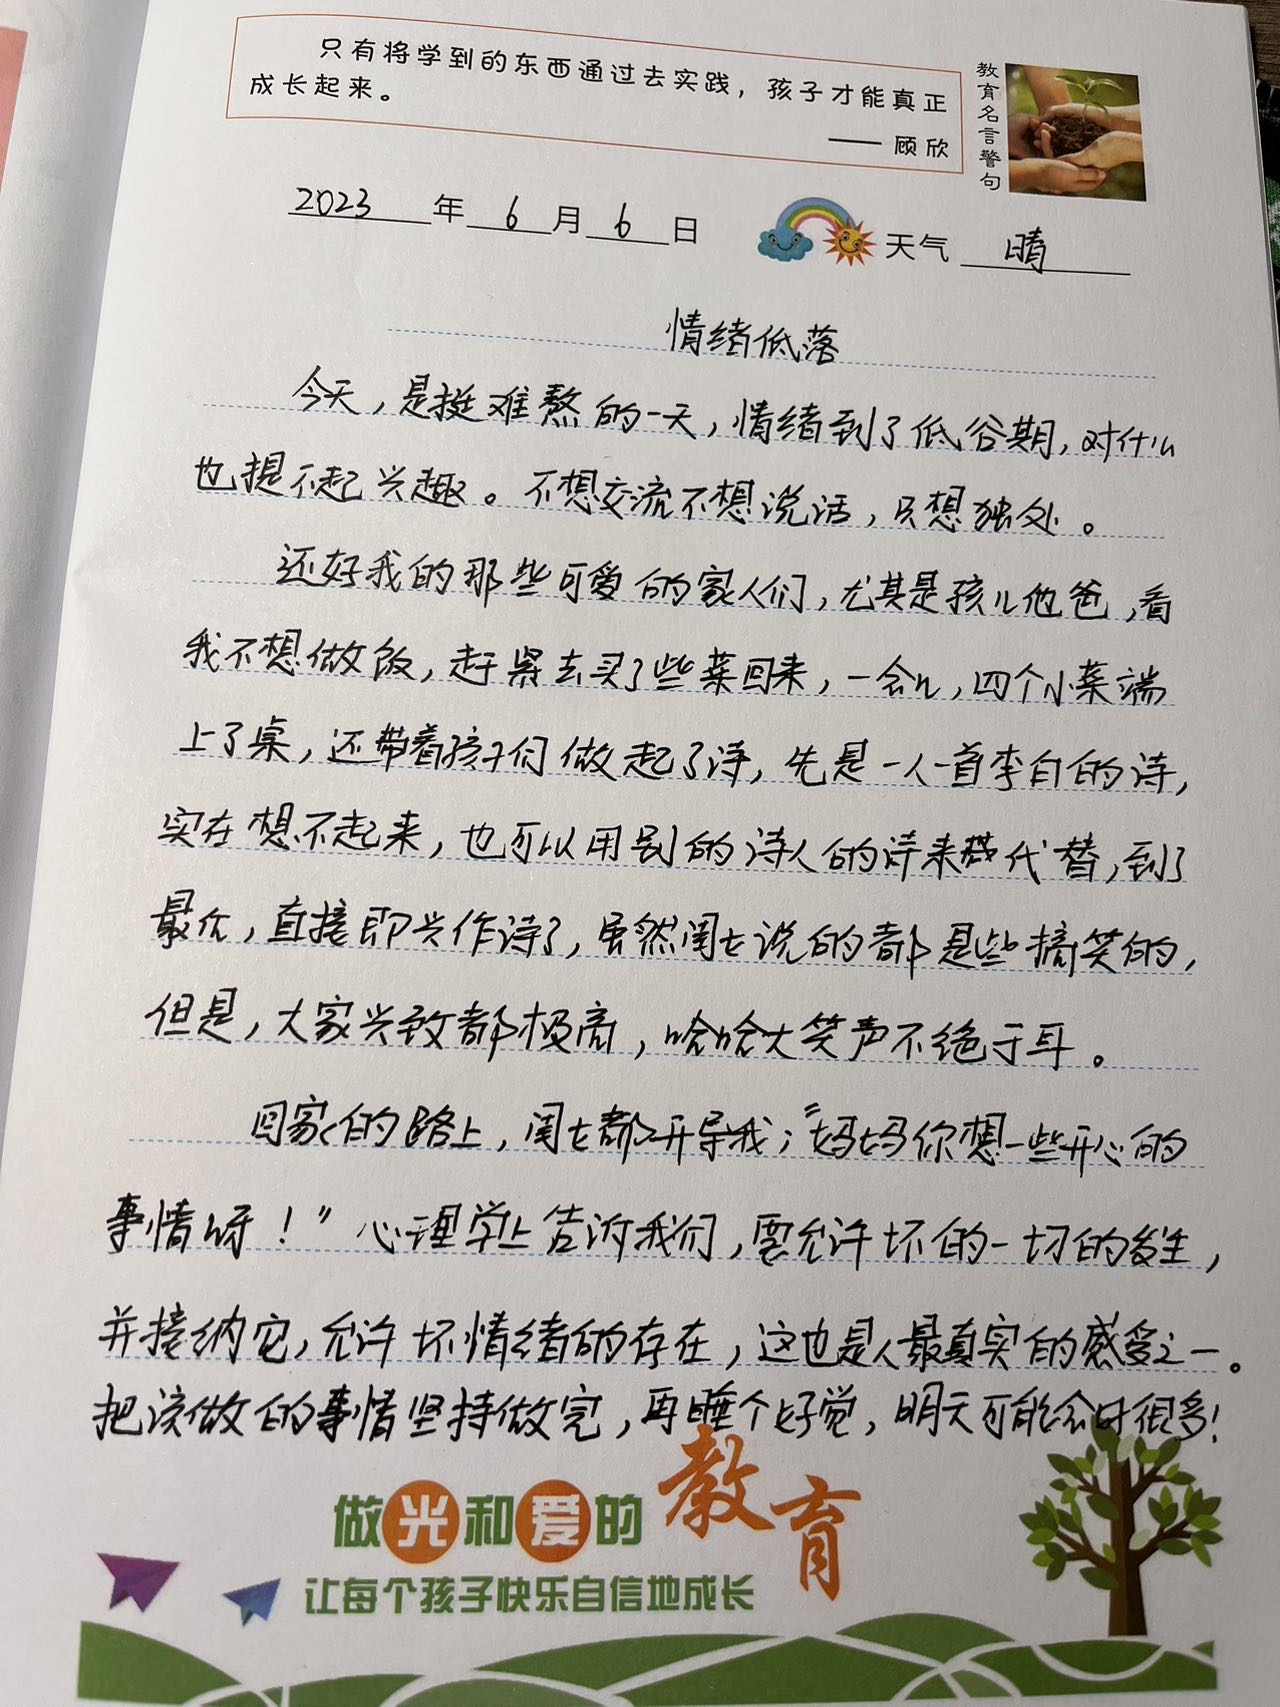 只有将学到的东西通过去实践，孩子才能真正
成长起来。
——顾欣
教育名言警句
2023年6月6日 天气 晴
情绪低落
今天，是挺难熬的一天，情绪到了低谷期，对什么
也提不起兴趣。不想交流不想说话，只想独处。
还好我的那些可爱的家人们，尤其是孩儿他爸，看
我不想做饭，赶紧去买了些菜回来，一会儿，四个小菜端
上了桌，还带着孩子们做起了诗，先是一人一首李白的诗，
实在想不起来，也可以用别的诗人的诗来代替，到了
最后，直接即兴作诗了，虽然闺女说的都是些搞笑的，
但是，大家兴致都极高，哈哈大笑声不绝于耳。
回家的路上，闺女都开导我；“妈妈你想一些开心的
事情呀！”心理学上告诉我们，要允许坏的一切的发生，
并接纳它，允许坏情绪的存在，这也是人最真实的感受之一。
把该做的事情坚持做完，再睡个好觉，明天可能会好很多！
做光和爱的教育
让每个孩子快乐自信地成长